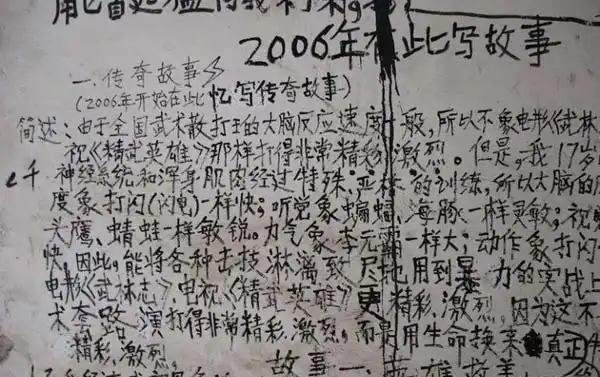 2006年在此写故事
一.传奇故事
(2006年开始在此忆写传奇故事)
简述:由于全国武术散打王的大脑反应速度一般,所以不象电影《武林
视《精武英雄》那样打得非常精彩.激烈。但是,我17岁
神经系统和浑身肌肉经过"特殊"的训练,所以大脑的
度象打闪(闪电)一样快;听觉象蝙蝠、海豚一样灵敏;视
头鹰、蜻蛙一样敏锐。力气象李元霸一样大;动作象打闪
快,因此,能将各种击技淋漓致尽地用到暴力的实战上
电影《武林志》.电视《精武英雄》更精彩.激烈,因为这不
术套路演打得非常精彩.激烈,而是用生命换来真正
精彩.激烈.
故事一.英雄故事